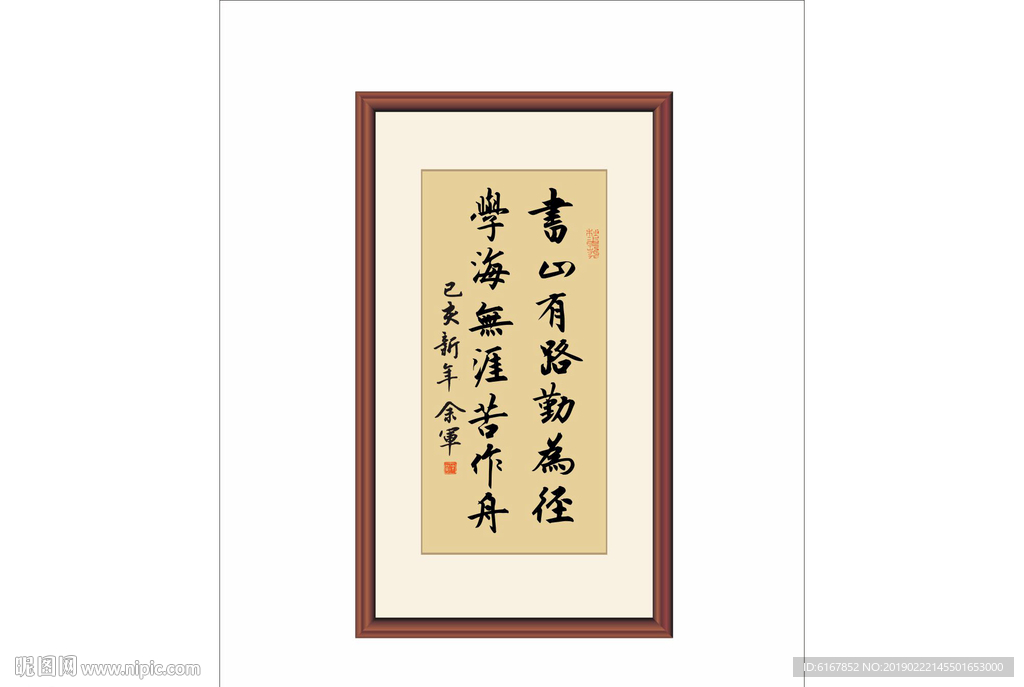 書山有路勤為徑
學海無涯苦作舟
己亥新年 余軍
昵图网 www.nipic.com
ID:6167852 NO:20190222145501653000